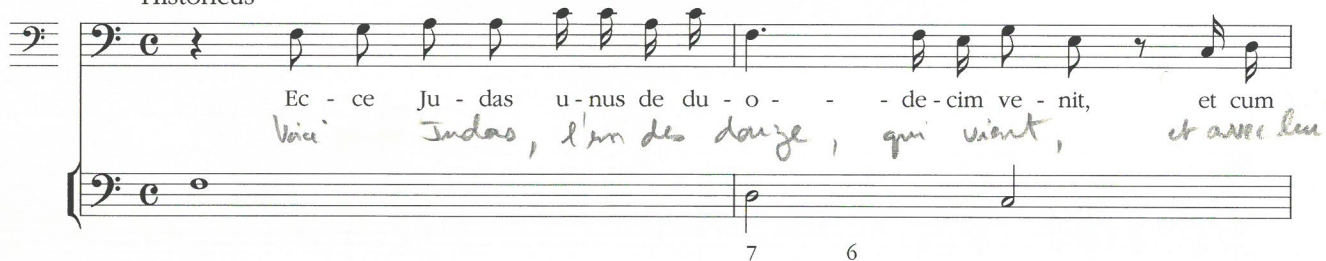 Historicus
Ec - ce Ju - das u - nus de du - o - - - de - cim ve - nit, et cum
Voici Judas, l'un des douze, qui vient, et avec lui
7 6